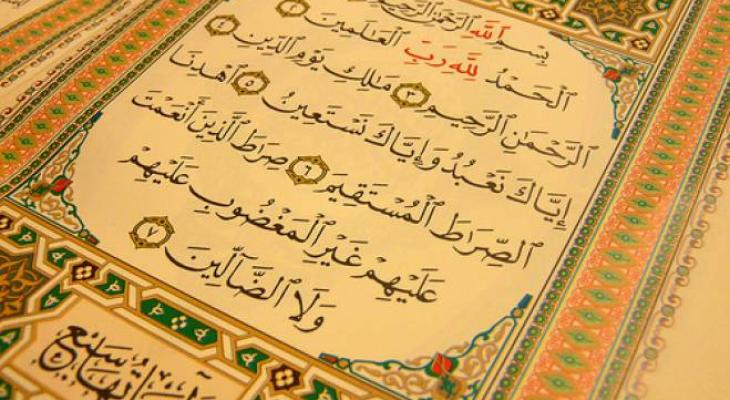 بِسْمِ ٱللَّهِ ٱلرَّحْمَٰنِ ٱلرَّحِيمِ
ٱلْحَمْدُ لِلَّهِ رَبِّ ٱلْعَٰلَمِينَ ٢
ٱلرَّحْمَٰنِ ٱلرَّحِيمِ ٣ مَٰلِكِ يَوْمِ ٱلدِّينِ ٤
إِيَّاكَ نَعْبُدُ وَإِيَّاكَ نَسْتَعِينُ ٥ ٱهْدِنَا
ٱلصِّرَٰطَ ٱلْمُسْتَقِيمَ ٦ صِرَٰطَ ٱلَّذِينَ أَنْعَمْتَ
عَلَيْهِمْ غَيْرِ ٱلْمَغْضُوبِ عَلَيْهِمْ
وَلَا ٱلضَّآلِّينَ ٧
سَبْعٌ